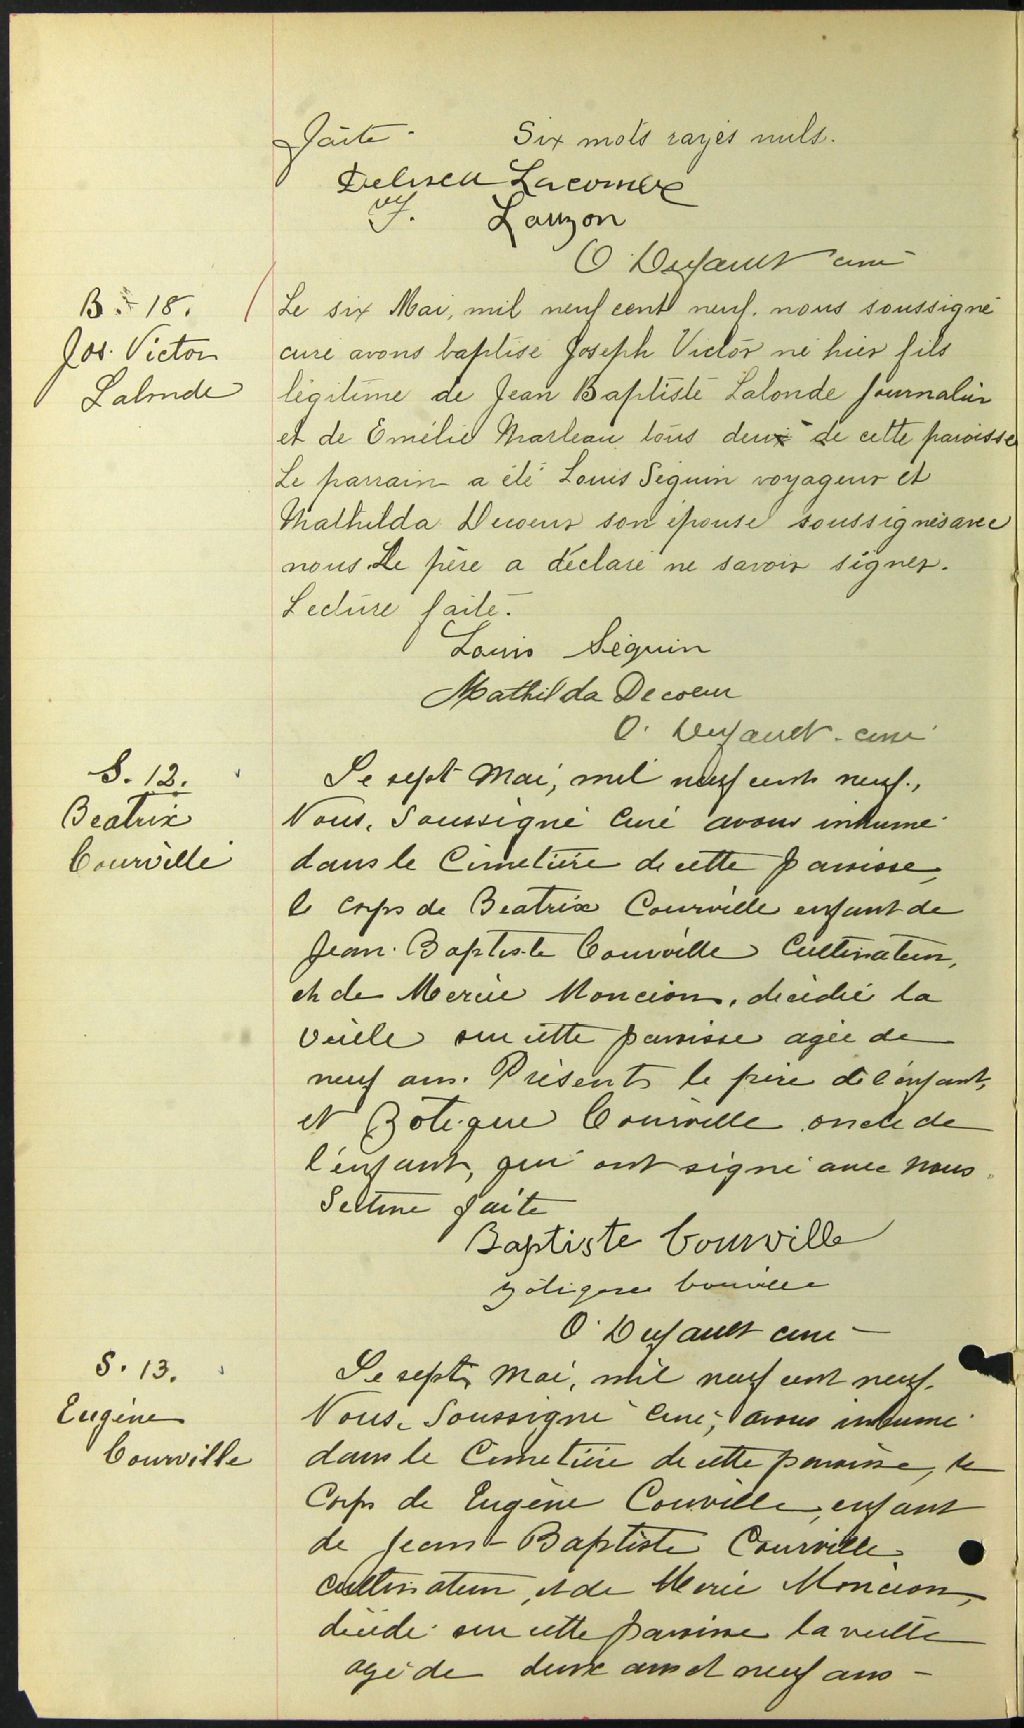 faite. Six mots rayés nuls.
Lacombe
Lauzon
O Dufault curé
B. 18.
Jos. Victor
Lalonde
Le six Mai, mil neuf cent neuf. nous soussigné
curé avons baptisé Joseph Victor né hier fils
légitime de Jean Baptiste Lalonde journalier
et de Emélie Marleau tous deux de cette paroisse
Le parrain a été Louis Séguin voyageur et
Mathilda Decoeur son épouse soussignés avec
nous. Le père a déclaré ne savoir signer.
Lecture faite.
Louis Séguin
Mathilda Decoeur
O. Dufault. curé
S. 12.
Beatrix
Courville
Le sept Mai, mil neuf cent neuf.,
Nous, Soussigné Curé avons inhumé
dans le Cimetière de cette paroisse,
le corps de Beatrix Courville enfant de
Jean-Baptiste Courville Cultivateur,
et de Moncion, décédée la
veille sur cette paroisse agée de
neuf ans. Présents le père de l'enfant,
et Zotique Courville oncle de
l'enfant, qui ont signé avec nous.
Lecture faite
Baptiste Courville
Zotique Courville
O. Dufault curé
S. 13.
Eugène
Courville
Le sept Mai, mil neuf cent neuf.
Nous, Soussigné curé, avons inhumé
dans le Cimetière de cette paroisse, le
Corps de Eugène Courville, enfant
de Jean-Baptiste Courville
cultivateur, et de Moncion,
décédé sur cette paroisse la veille
agé de deux ans et neuf ans